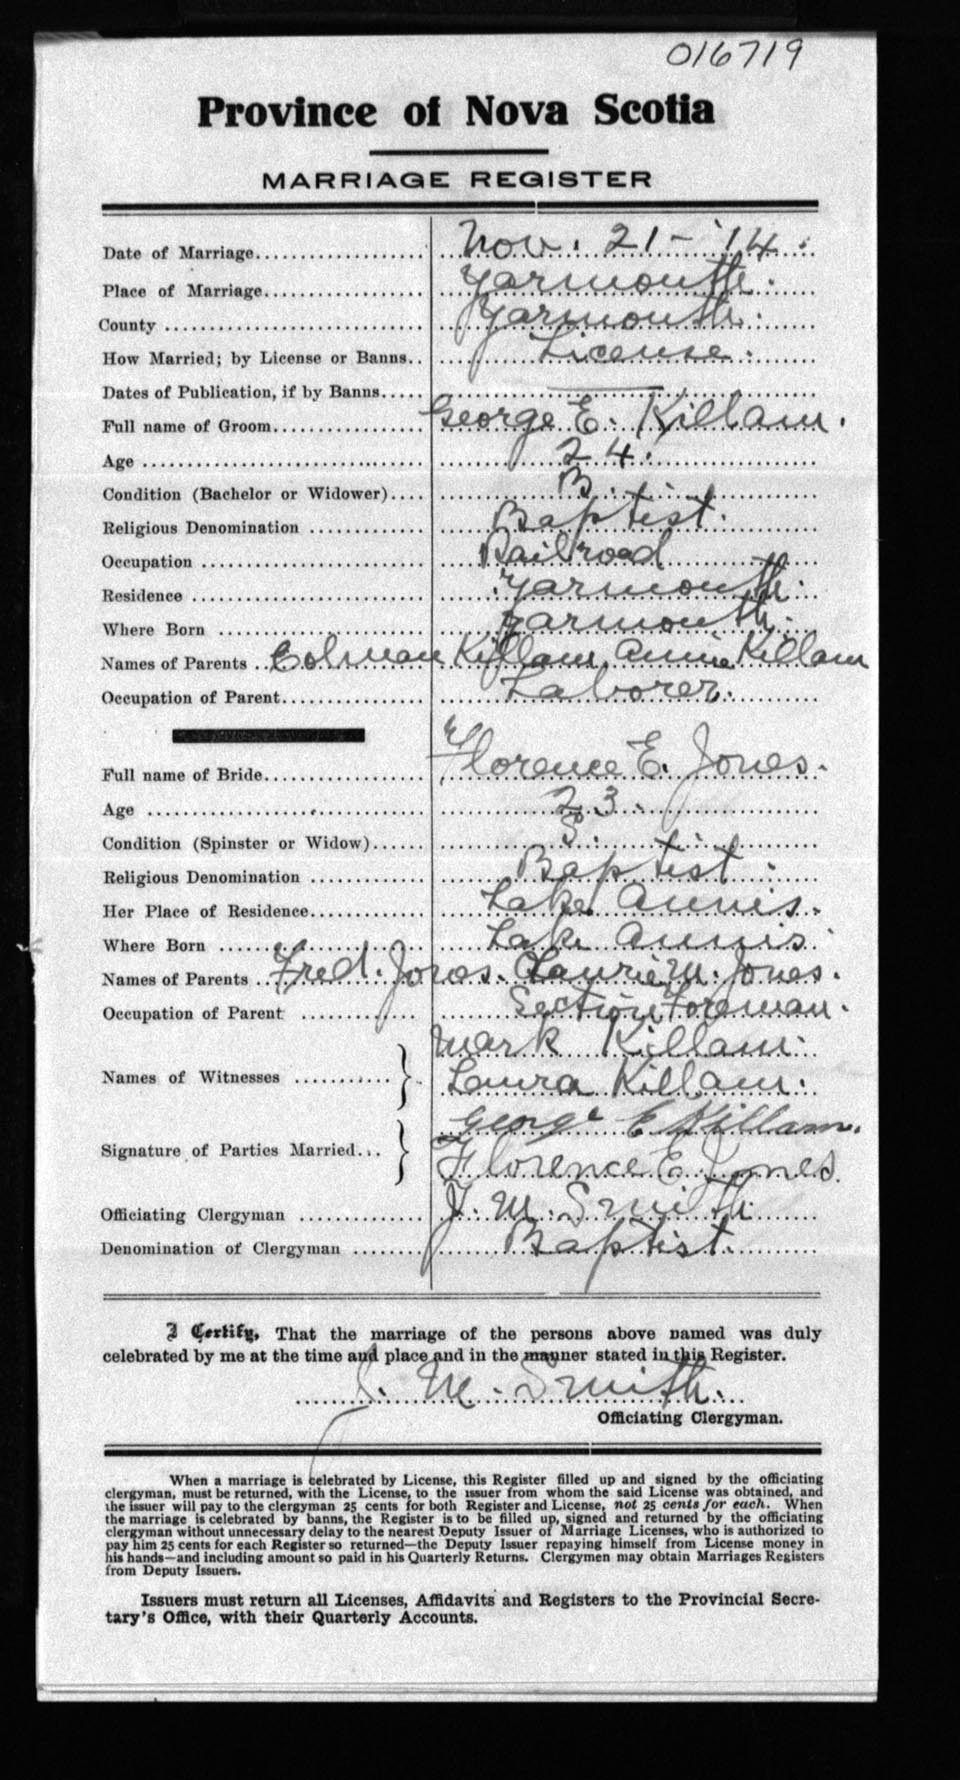 016719
Province of Nova Scotia
MARRIAGE REGISTER
Date of Marriage Nov. 21-'14.
Place of Marriage Yarmouth.
County Yarmouth.
How Married; by License or Banns License.
Dates of Publication, if by Banns
Full name of Groom George E. Killam.
Age 24.
Condition (Bachelor or Widower) B.
Religious Denomination Baptist.
Occupation Railroad
Residence Yarmouth.
Where Born Yarmouth.
Names of Parents Colman Killam, Annie Killam
Occupation of Parent Laborer.
Full name of Bride Florence E. Jones.
Age 23.
Condition (Spinster or Widow) S.
Religious Denomination Baptist.
Her Place of Residence Lake Annis.
Where Born Lake Annis.
Names of Parents Fred. Jones. M. Jones.
Occupation of Parent Section Foreman.
Names of Witnesses } Mark Killam.
Laura Killam.
Signature of Parties Married } George E Killam.
Florence E Jones.
Officiating Clergyman J. M. Smith
Denomination of Clergyman Baptist.
I Certify, That the marriage of the persons above named was duly
celebrated by me at the time and place and in the manner stated in this Register.
J. M. Smith.
Officiating Clergyman.
When a marriage is celebrated by License, this Register filled up and signed by the officiating
clergyman, must be returned, with the License, to the issuer from whom the said License was obtained, and
the issuer will pay to the clergyman 25 cents for both Register and License, not 25 cents for each. When
the marriage is celebrated by banns, the Register is to be filled up, signed and returned by the officiating
clergyman without unnecessary delay to the nearest Deputy Issuer of Marriage Licenses, who is authorized to
pay him 25 cents for each Register so returned—the Deputy Issuer repaying himself from License money in
his hands—and including amount so paid in his Quarterly Returns. Clergymen may obtain Marriages Registers
from Deputy Issuers.
Issuers must return all Licenses, Affidavits and Registers to the Provincial Secre-
tary's Office, with their Quarterly Accounts.